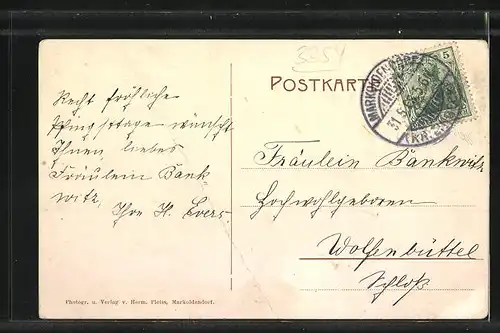 3354
POSTKARTE
5
MARKOLDENDORF
31.5.
Recht fröhliche
Pfingsttage wünscht
Ihnen, liebes
Fräulein Bank
witz,
Ihre H. Evers
Fräulein Bankwitz
Hochwohlgeboren
Wolfenbüttel
Schloß
Photogr. u. Verlag v. Herm. Fleiss, Markoldendorf.